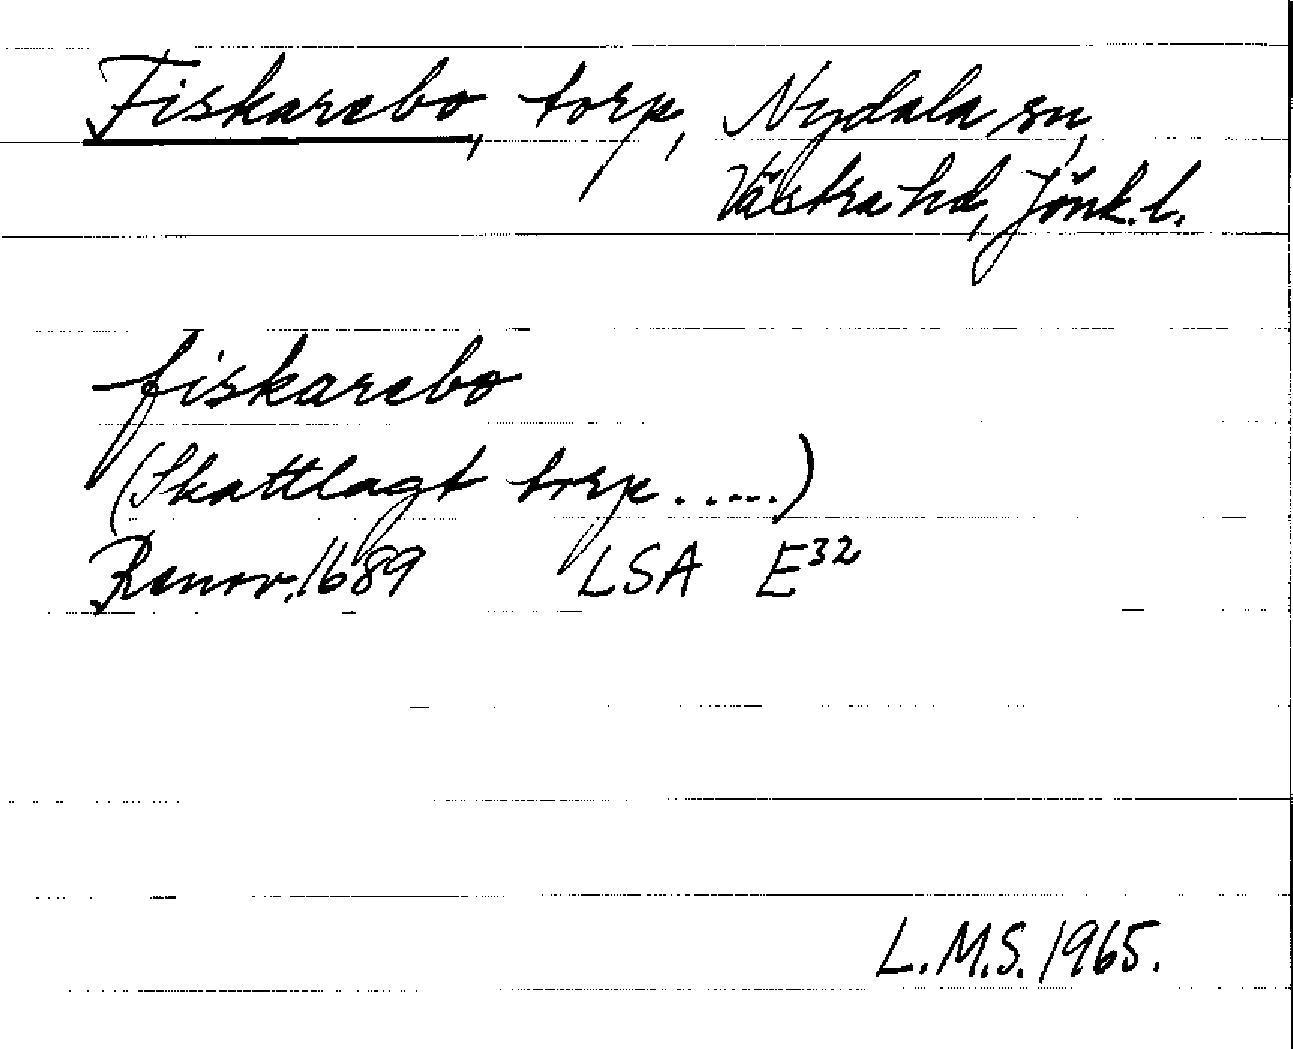 Fiskarebo, torp, Nydala sn,
Västra hd, Jönk. l.
fiskarebo
(Skattlagt torp .....)
Renov. 1689 LSA E³²
L.M.S. 1965.